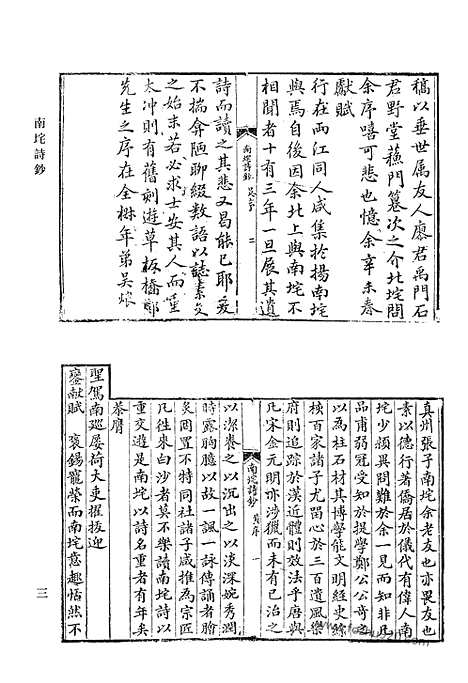 南垞詩鈔
稿以垂世属友人廖君禹門石
君野堂蘓門纂次之介北垞問
余序嘻可悲也憶余辛未春
獻賦
行在兩江同人咸集於揚南垞
與焉自後因余北上與南垞不
相聞者十有三年一旦展其遺
南垞詩鈔 吳序 二
詩而讀之其悲又曷能已耶爰
不揣弇陋聊綴數語以誌素交
之始末若必求士安其人而重
太冲則有舊刻遊草板橋鄭
先生之序在全椒年弟吳烺
真州張子南垞余老友也亦畏友也
素以德行著僑居於儀代有偉人南
垞少頗異問難於余一見而知非凡
品甫弱冠受知於提學鄭公公奇之
以為柱石材其博學能文明經史綜
核百家諸子尤留心於三百遺風樂
府則追踪於漢近體則效法乎唐與
凡宋金元明亦涉獵而未有已治之
南垞詩鈔 序 一
以潔養之以沉出之以淡深婉秀潤
時露胸臆以故一諷一詠傳誦者膾
炙固罝不特同社諸子咸推為宗匠
凡往來白沙者莫不樂讀南垞詩以
重交遊是南垞以詩名重者有年矣
恭膺
聖駕南巡屡荷大吏擢拔迎
鑾献賦 褒錫寵榮而南垞意趣恬然不
三